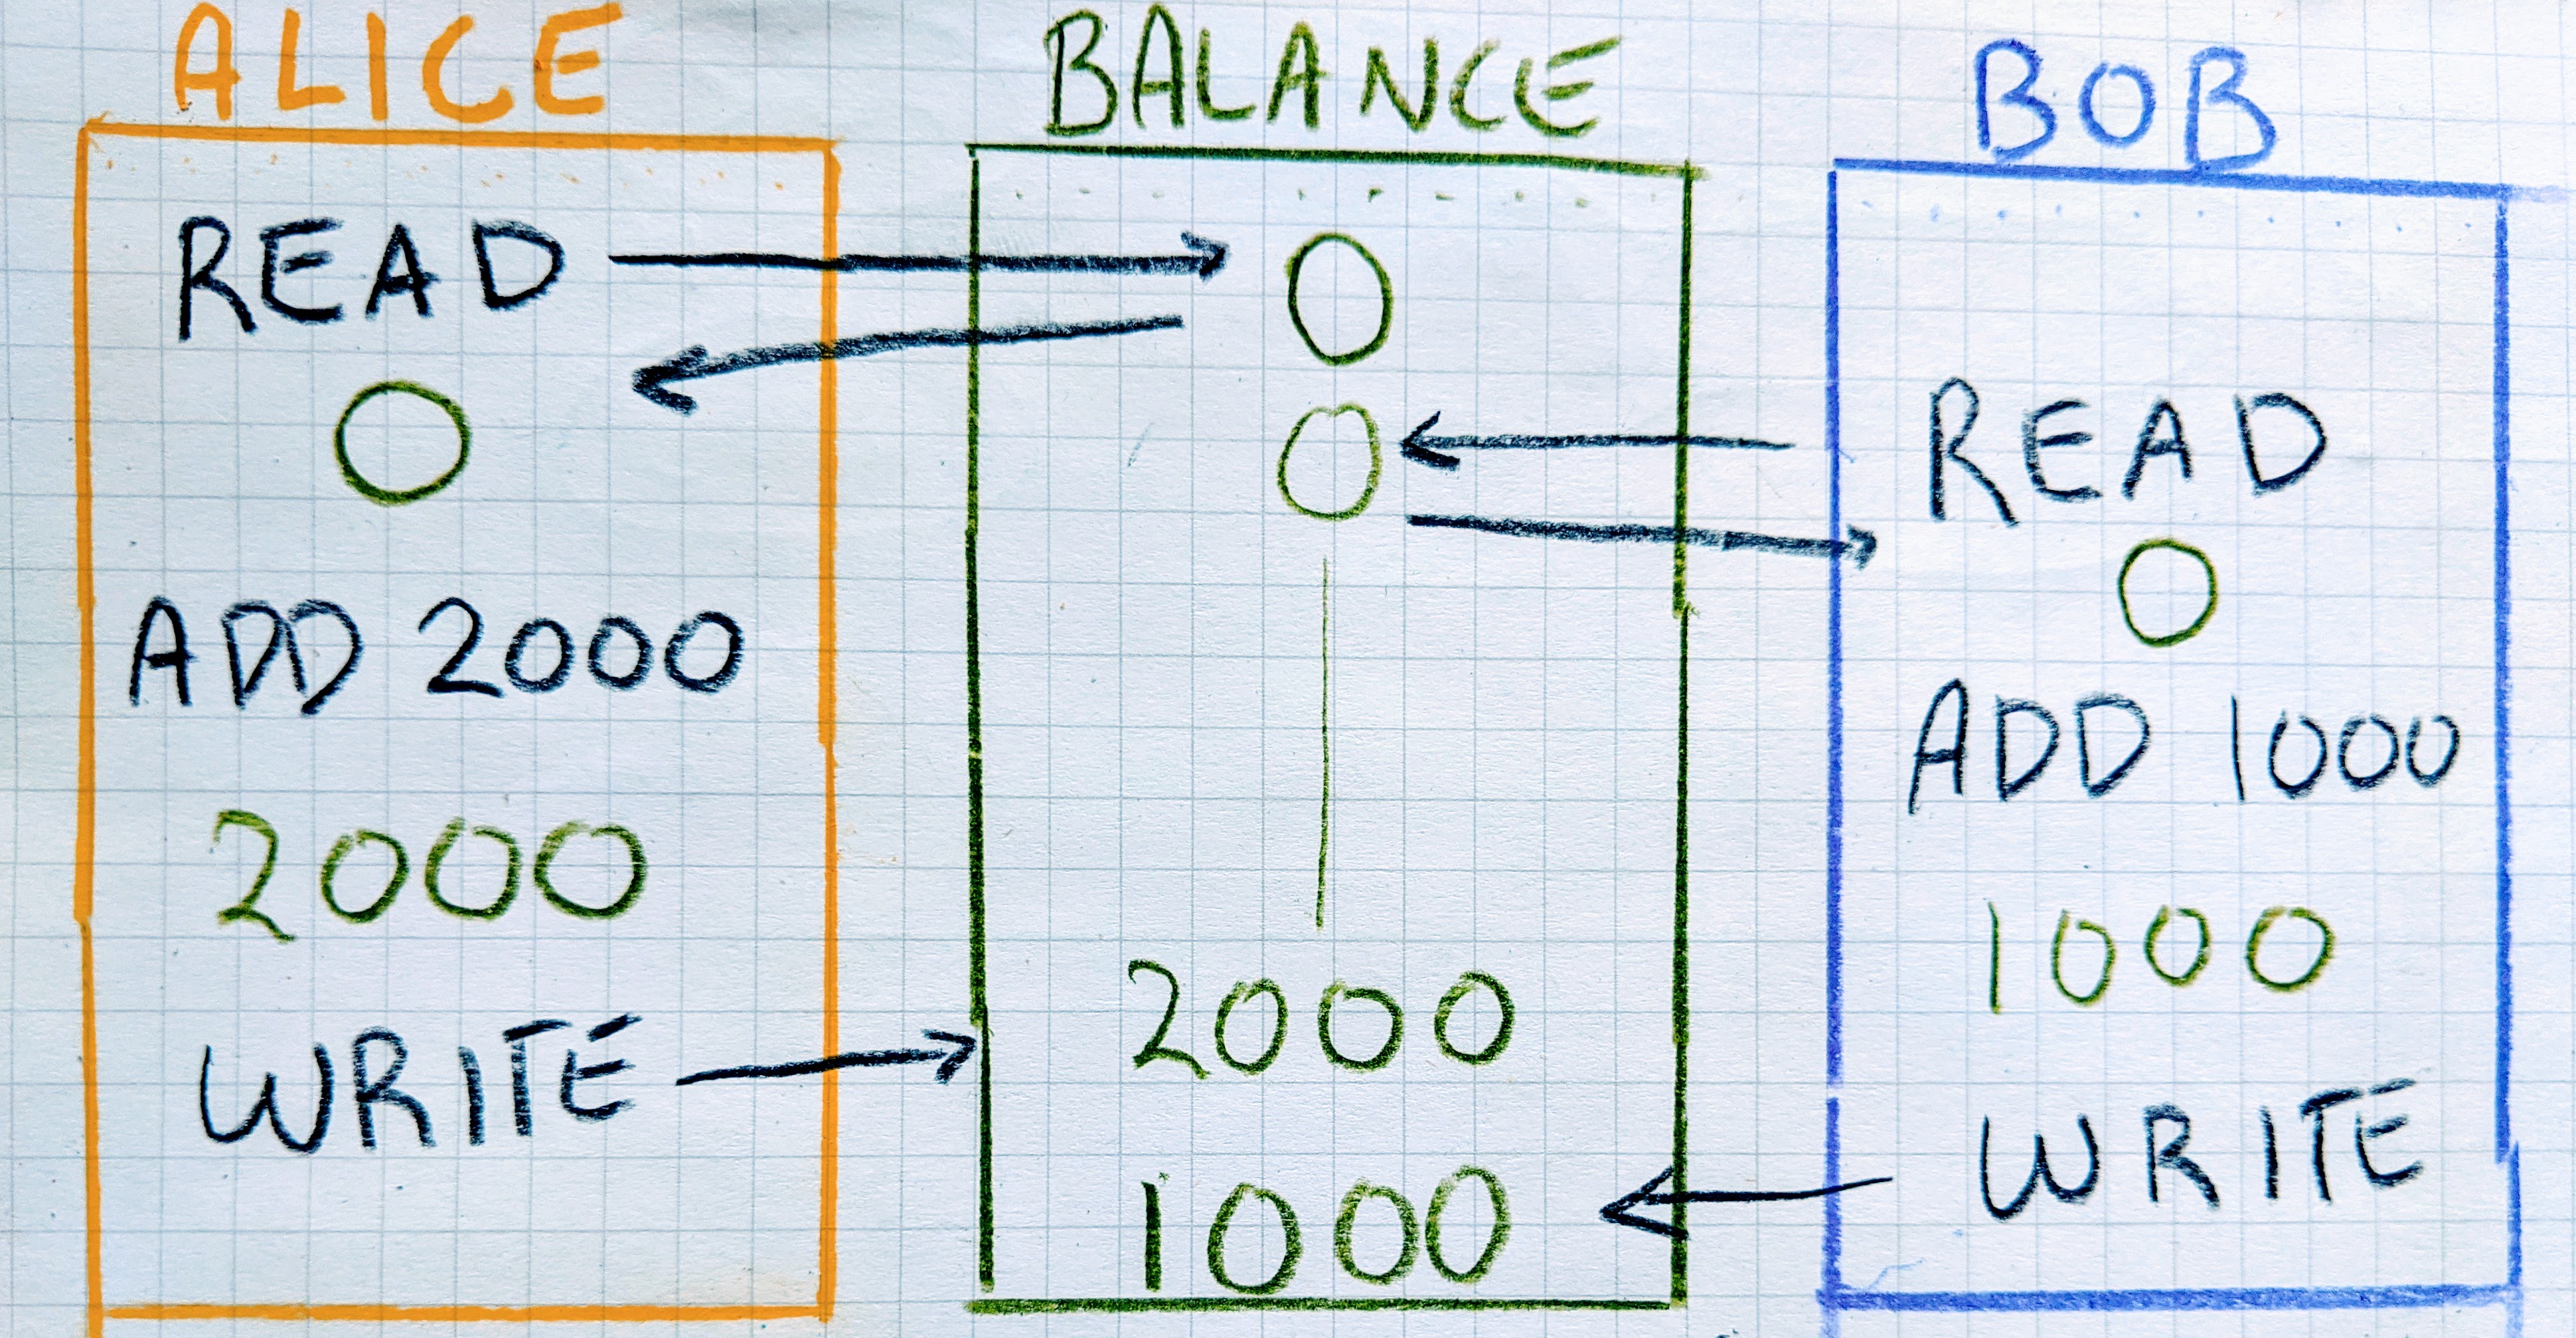 ALICE
READ
0
ADD 2000
2000
WRITE
BALANCE
0
0
2000
1000
BOB
READ
0
ADD 1000
1000
WRITE